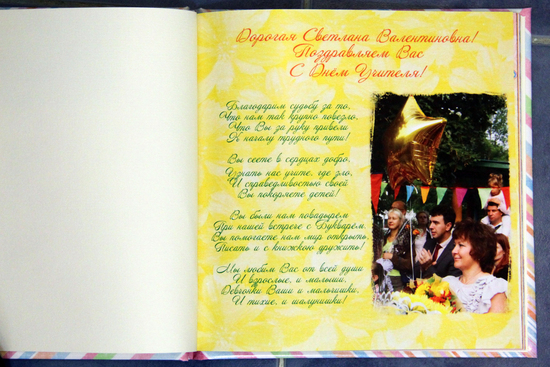 Дорогая Светлана Валентиновна!
Поздравляем Вас
С Днем Учителя!
Благодарим судьбу за то,
Что нам так крупно повезло,
Что Вы за руку привели
К началу трудного пути!
Вы сеете в сердцах добро,
Узнать нас учите, где зло,
И справедливостью своей
Вы покоряете детей!
Вы были нам поводырём
При нашей встрече с Букварём,
Вы помогаете нам мир открыть,
Писать и с книжкою дружить!
Мы любим Вас от всей души
И взрослые, и малыши,
Девчонки Ваши и мальчишки,
И тихие, и шалунишки!